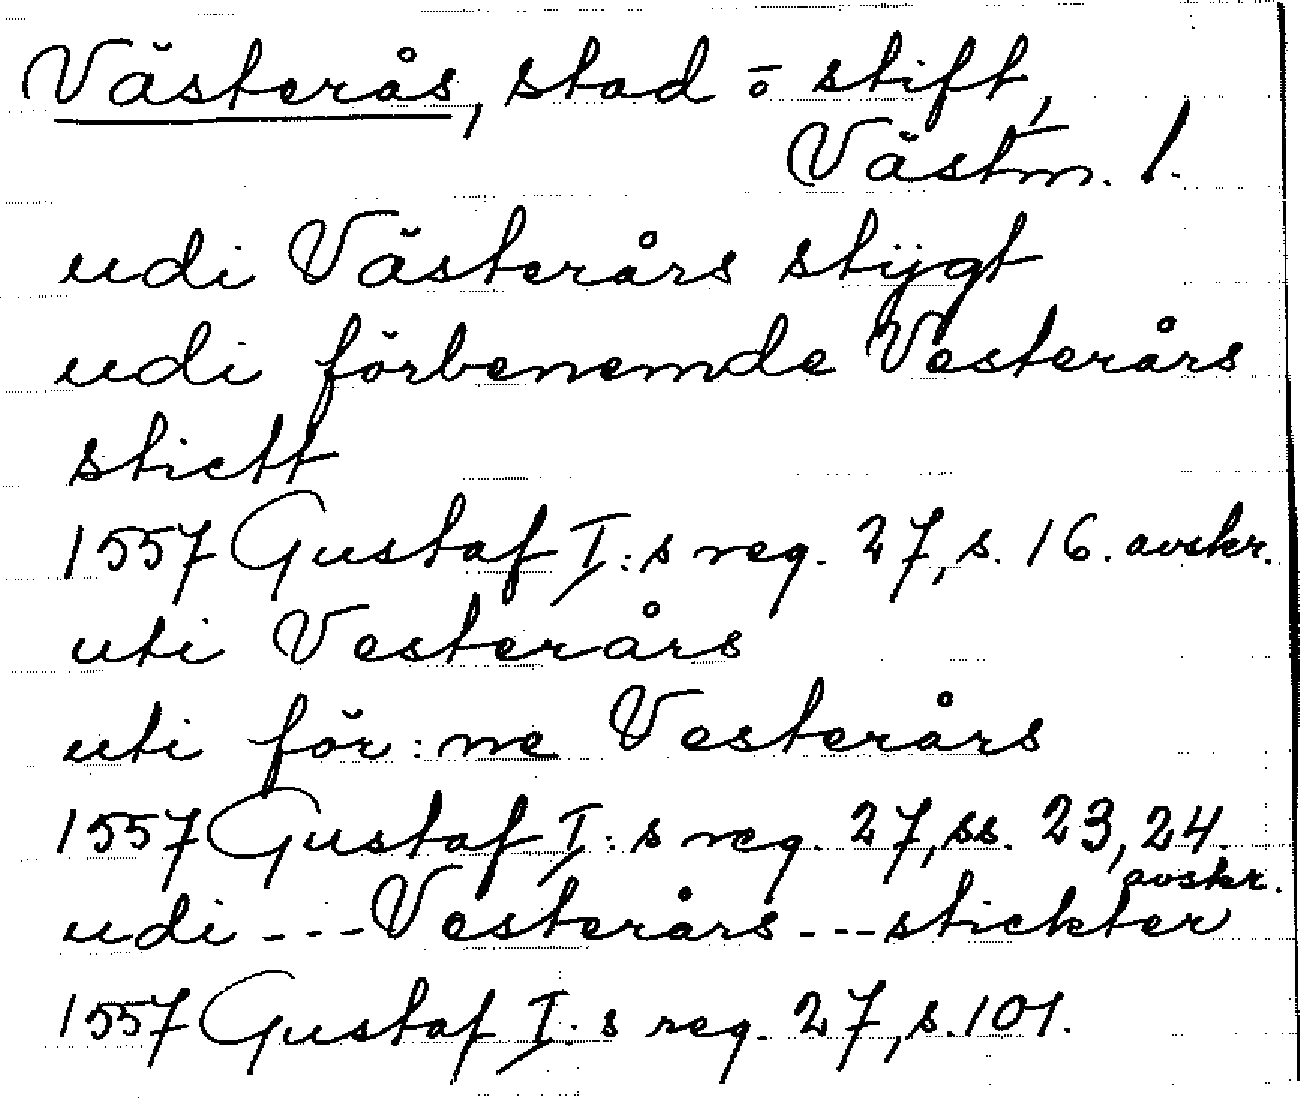 Västerås, stad o stift,
Västm. l.
udi Västerårs stÿgt
udi förbenemde Vesterårs
stictt
1557 Gustaf I:s reg. 27, s. 16. avskr.
uti Vesterårs
uti för:ne Vesterårs
1557 Gustaf I:s reg. 27, ss. 23, 24.
avskr.
udi --- Vesterårs --- stickter
1557 Gustaf I:s reg. 27, s. 101.